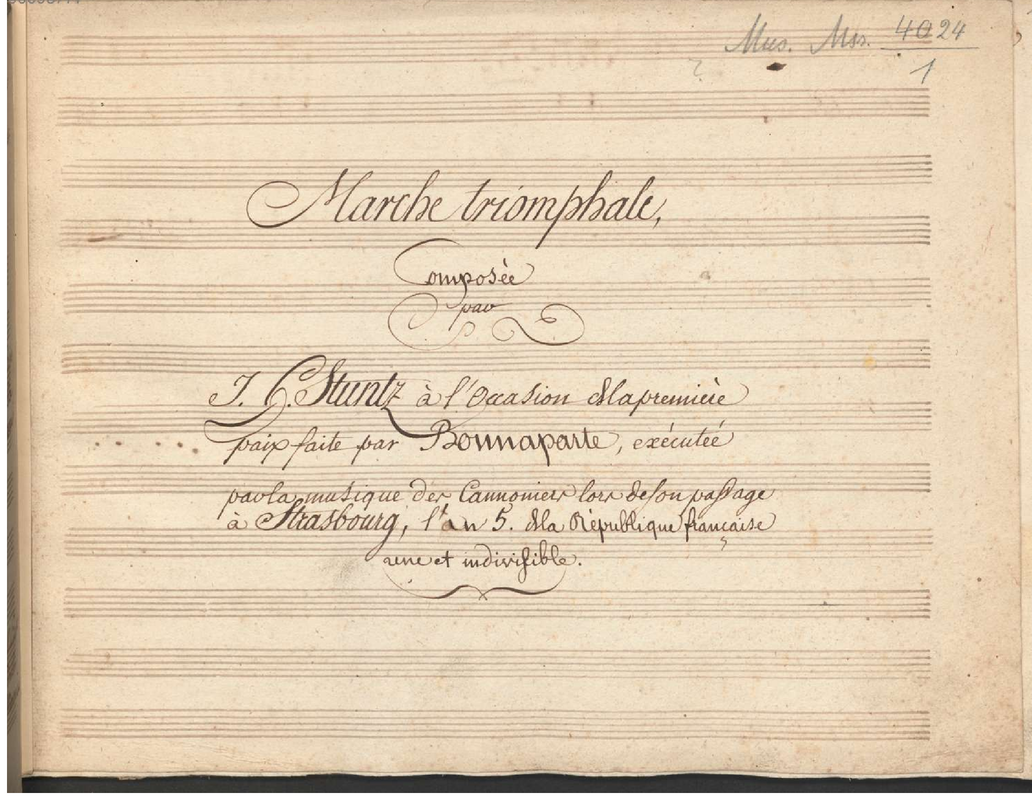 Mus. Mss. 4024
1
Marche triomphale,
Composée
par
J. G. Stuntz à l'Occasion dla premiere
paix faite par Bonnaparte, exécuteé
par la musique des Cannoniers lors de son passage
à Strasbourg, l'an 5. dla Rèpublique françaíse
une et indivisible.